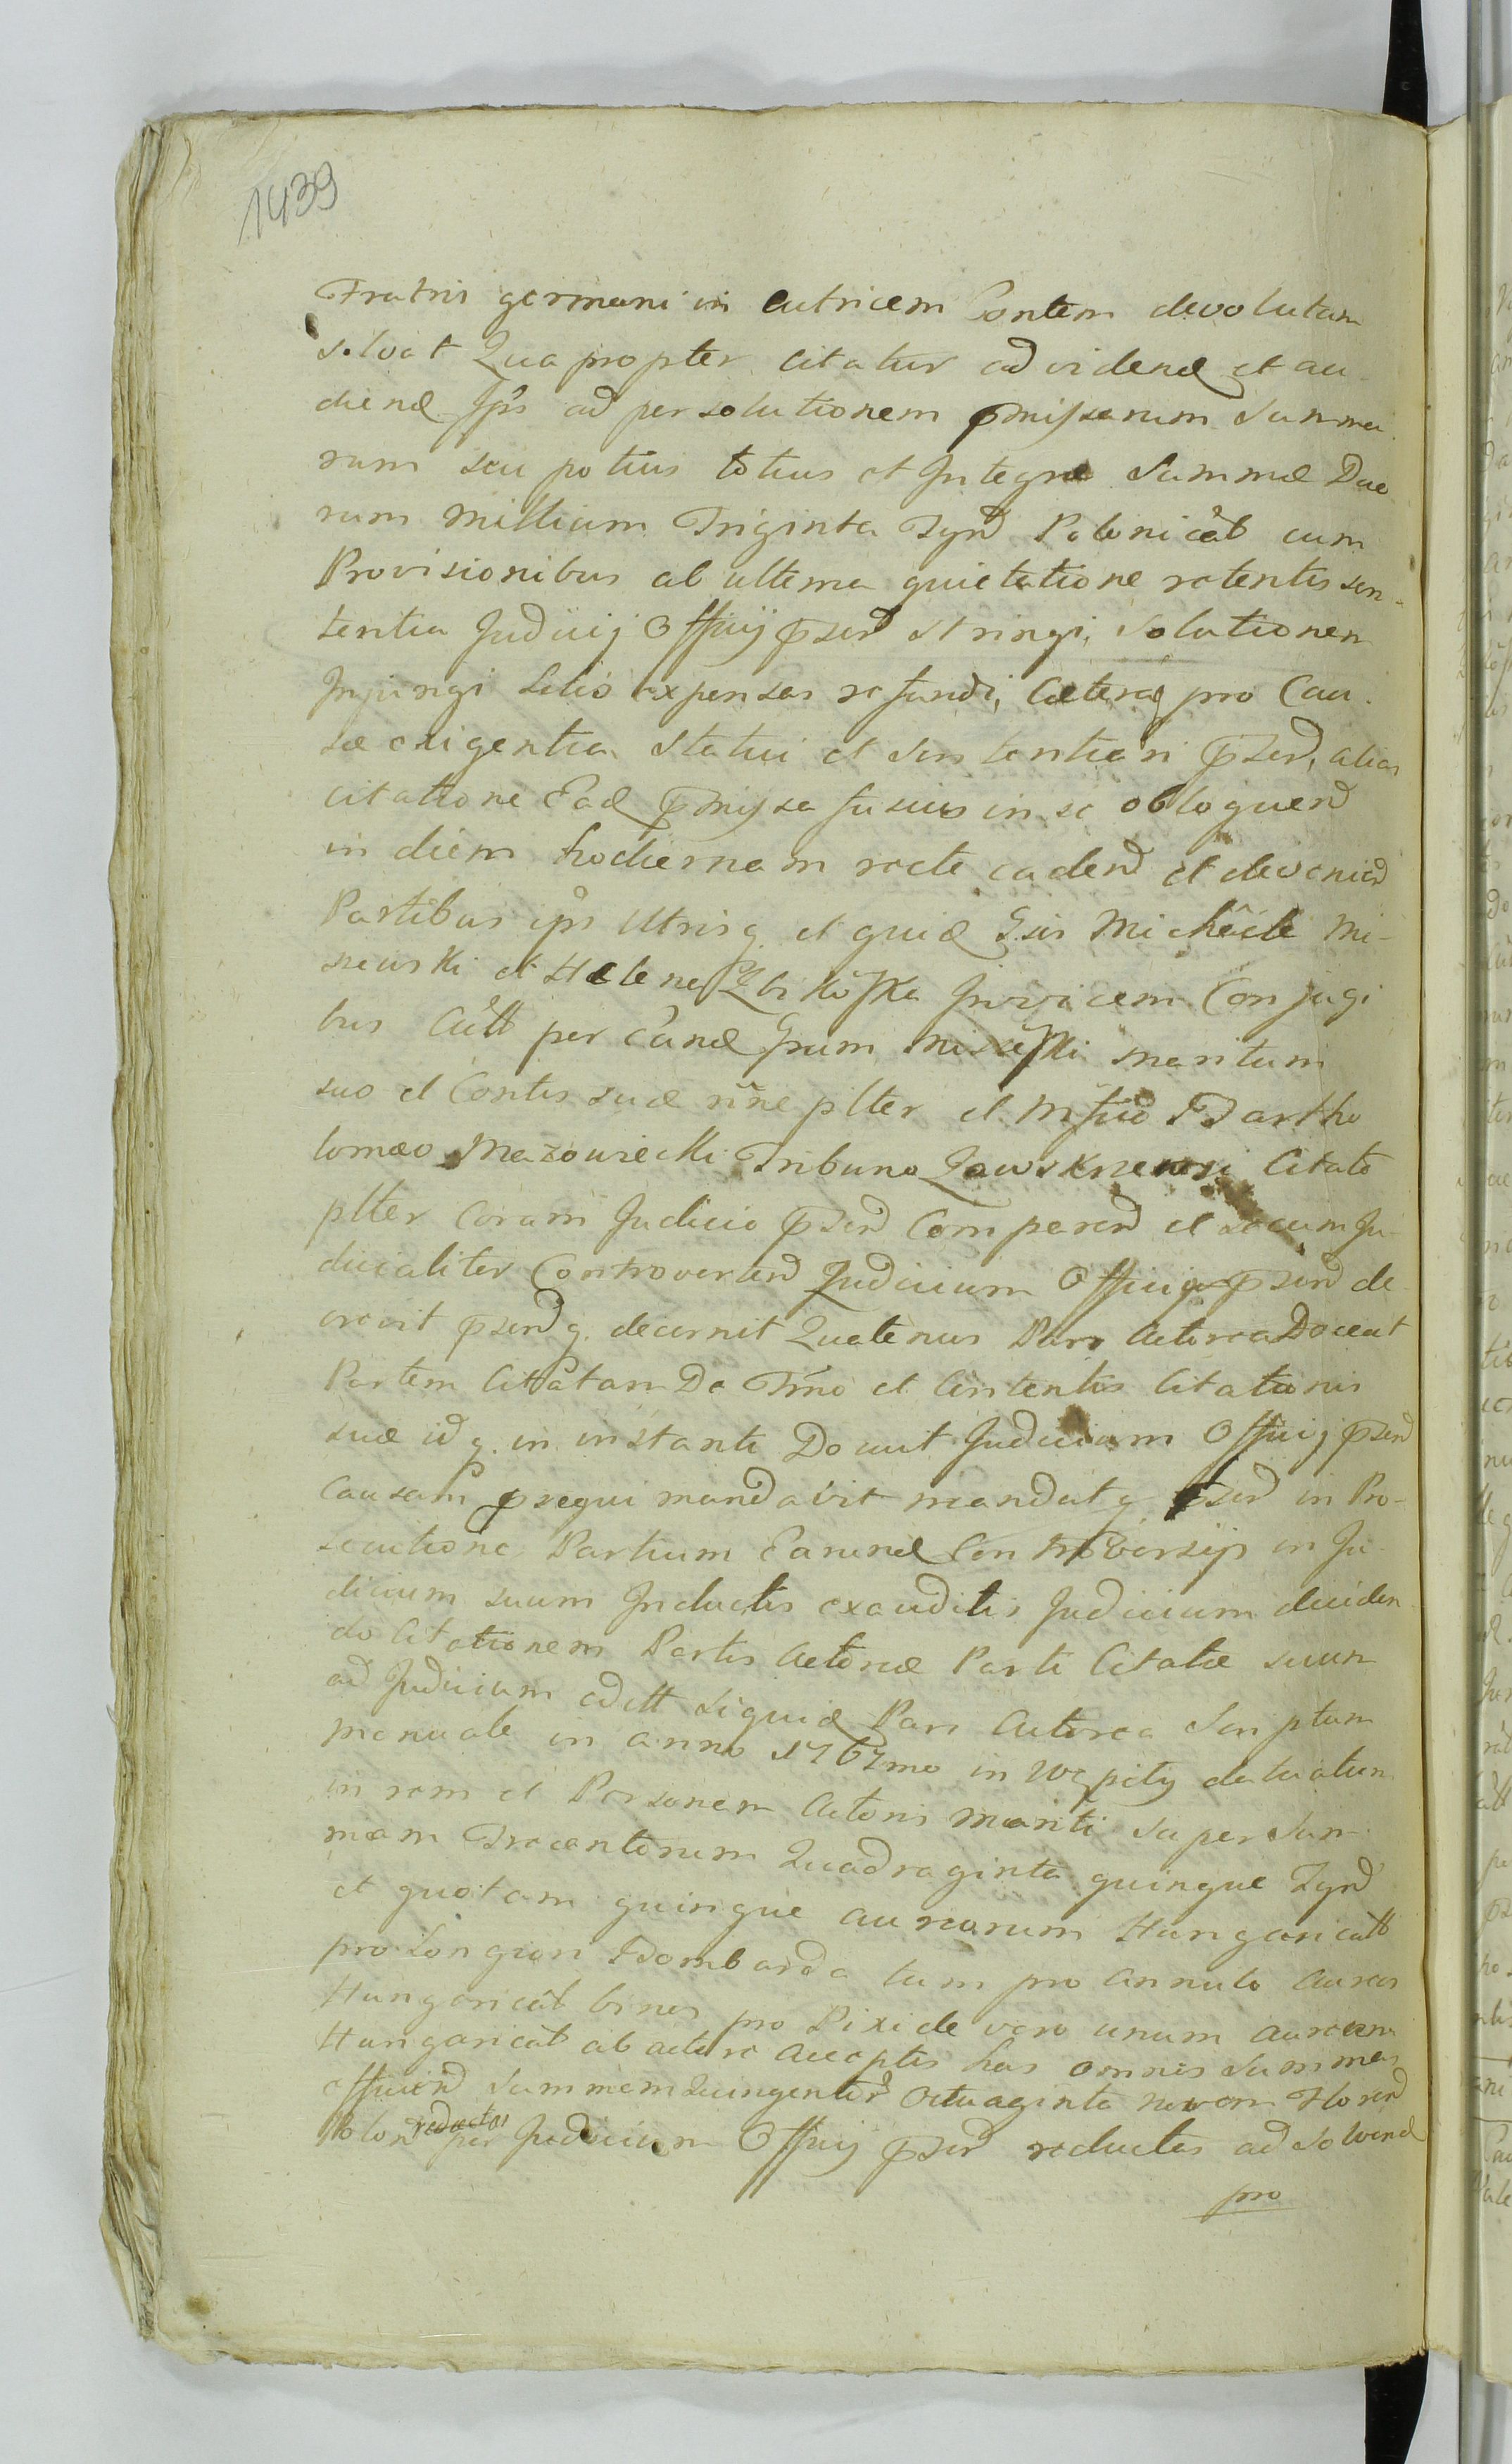 1439
Fratris germani in Actricem Contem devolutam
solvat Qua propter citatur ad videnđ et au-
dienđ Ips ad persolutionem pmissarum Summa-
rum seu potius totius et Integræ Summæ Duo
rum Millium Triginta Tynf Polonicał cum
Provisionibus ab ultima quietatione retentis sen-
tentia Judicij Officij pserđ stringi, solutionem
Injungi Litis expensas refundi, Cæteraq pro Cau-
sæ exigentia Statui et Sententiari pserđ, alias
citatione Eađ pmissa fusius in se obloquenđ
in diem hodiernam recte cadenđ et devenienđ
Partibus ips Utrisq et quiđ Gsis Michaele Mi-
siewski et Helena Invicem Conjugi
bus Actt per eunđ Gsum maritum
suo et Contis suæ nñe pltter et Mfico Bartho
lomæo Mazowiecki Tribuno Zawskrnensi Citato
pltter Coram Judicio pserđ Comparenđ et secum Ju-
dicialiter Controvertenđ Judicium Officij pserđ de
crevit pserđq decernit Quatenus Pars Actorea Doceat
Partem Cittatam De Tmo et Contentis Citationis
suæ idq in instanti Docuit Judicium Officij pserđ
Causam psequi mandavit mandatq pserđ in Pro-
secutione Partium Earunđ Controversijs in Ju-
dicium suum Inductis exauditis Judicium dividen
do Citationem Partis Actoreæ Parti Citatæ suum
ad Judicium aditt siquiđ Pars Actorea Scriptum
manuale in anno 1767mo in Wępity datuatum
in rem et Personam Actoris Mariti super Sum-
mam Trecentorum Quadraginta quinque Tynf
et quotam quinque aureorum Hungaricałł
pro Longiori Bombarda tum pro annulo Aureos
Hungaricał binos pro Pixide vero unum aureum
Hungaricał ab actore acceptis has omnes Summas
efficienđ Summam Quingentoř Octuaginta Novem Floren
Polon reductas per Judicium Officij pserđ reductas ad solvenđ
pro